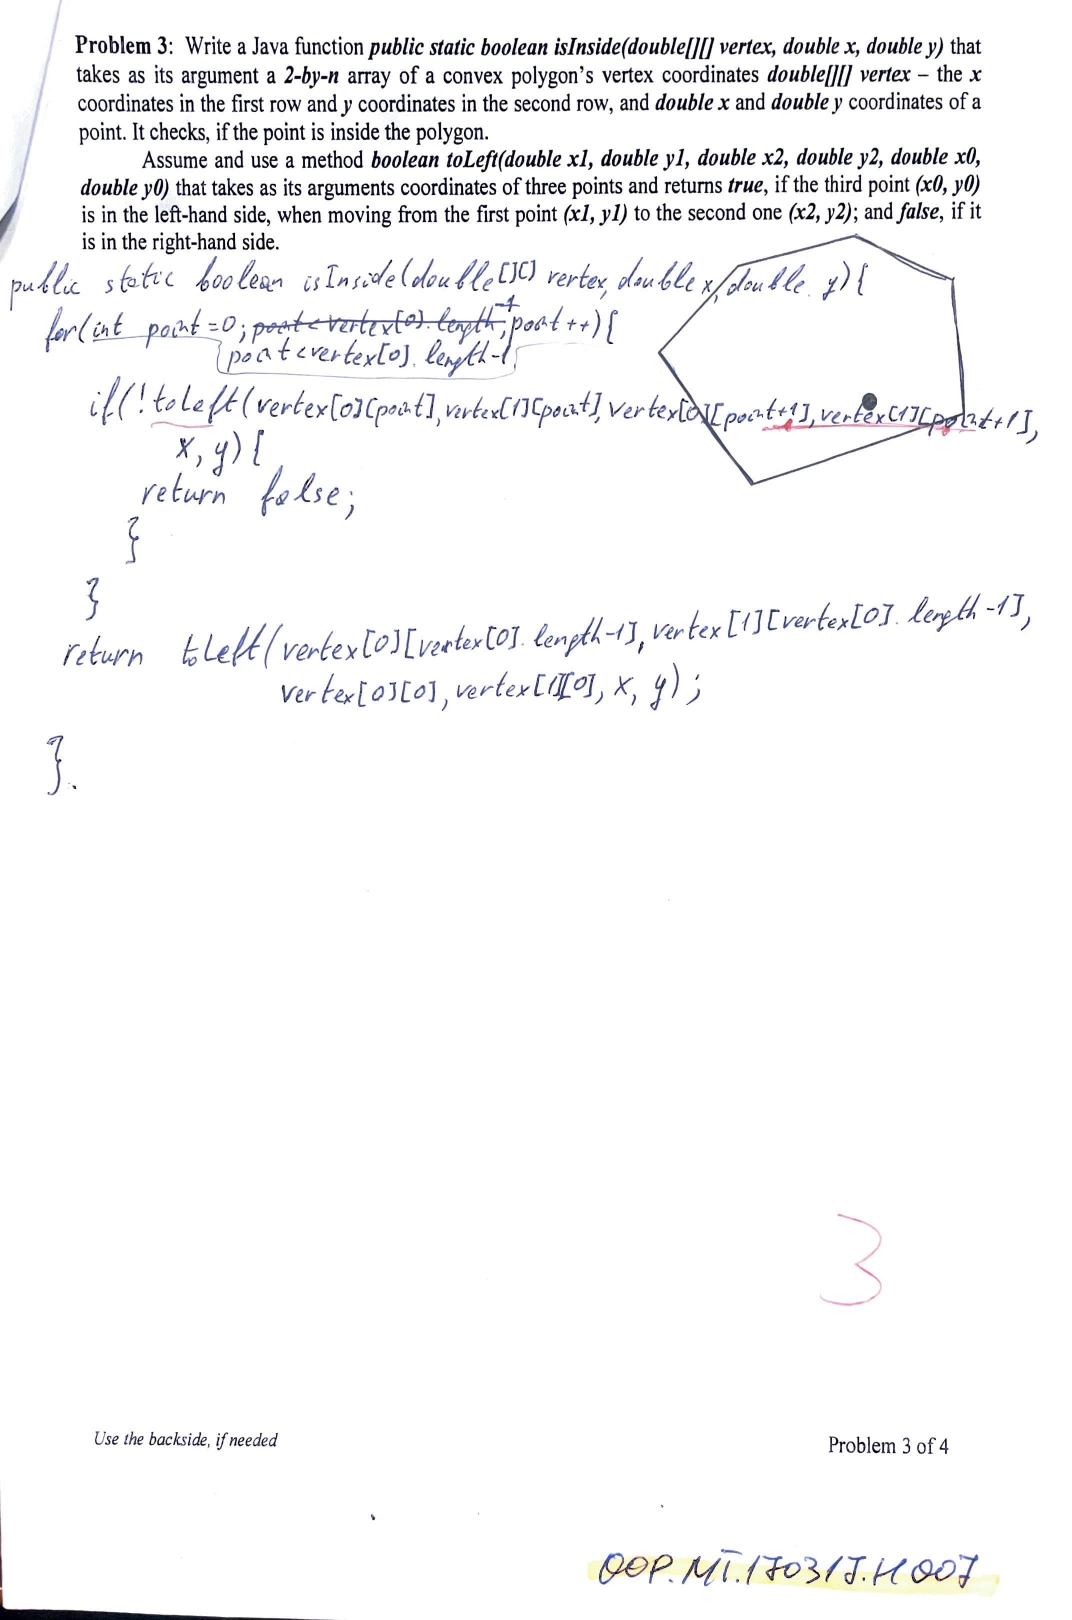 Problem 3: Write a Java function public static boolean isInside(double[][] vertex, double x, double y) that
takes as its argument a 2-by-n array of a convex polygon's vertex coordinates double[][] vertex – the x
coordinates in the first row and y coordinates in the second row, and double x and double y coordinates of a
point. It checks, if the point is inside the polygon.
Assume and use a method boolean toLeft(double x1, double y1, double x2, double y2, double x0,
double y0) that takes as its arguments coordinates of three points and returns true, if the third point (x0, y0)
is in the left-hand side, when moving from the first point (x1, y1) to the second one (x2, y2); and false, if it
is in the right-hand side.
public static boolean isInside(double[][] vertex, double x, double y) {
for(int point = 0; point < vertex[0].length-1; point ++) {
point < vertex[0].length-1;
if(!toLeft(vertex[0][point], vertex[1][point], vertex[0][point+1], vertex[1][point+1],
x, y) {
return false;
}
}
return toLeft(vertex[0][vertex[0].length-1], vertex[1][vertex[0].length-1],
vertex[0][0], vertex[1][0], x, y);
}.
3
Use the backside, if needed
Problem 3 of 4
OOP.MT.170317.H007